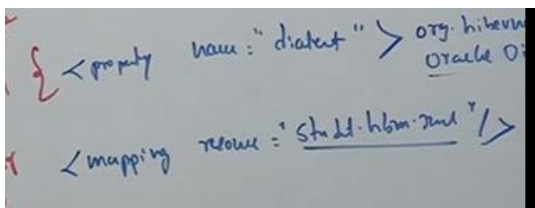 { <property name="dialect"> org.hibern
Oracle Di
<mapping resource="studt.hbm.xml"/>